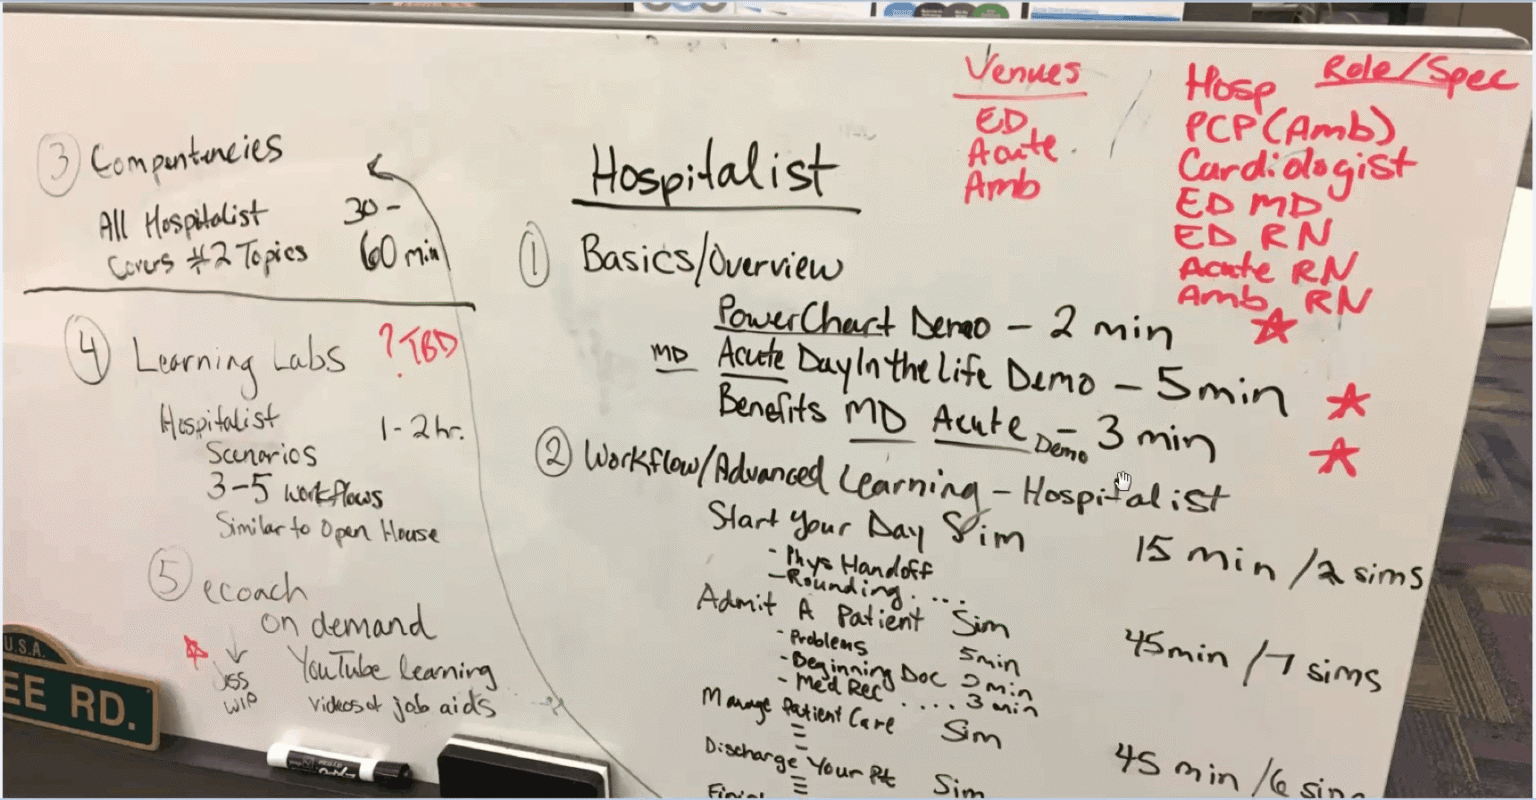 Venues
ED
Acute
Amb
Role/Spec
Hosp
PCP (Amb)
Cardiologist
ED MD
ED RN
Acute RN
Amb RN
Hospitalist
① Basics/Overview
PowerChart Demo - 2 min
MD Acute Day In the Life Demo - 5 min
Benefits MD Acute Demo - 3 min
② Workflow/Advanced Learning - Hospitalist
Start Your Day Sim 15 min /2 sims
- Phys Handoff
- Rounding....
Admit A Patient Sim 45 min /7 sims
- Problems 5 min
- Beginning Doc 2 min
- Med Rec .... 3 min
Manage Patient Care Sim 45 min /6 sims
Discharge Your Pt Sim
③ Compentencies
All Hospitalist 30-
Covers #2 Topics 60 min
④ Learning Labs ? TBD
Hospitalist 1-2 hr.
Scenarios
3-5 workflows
Similar to Open House
⑤ ecoach
on demand
YouTube learning
WIP Videos of job aids
U.S.A.
EE RD.